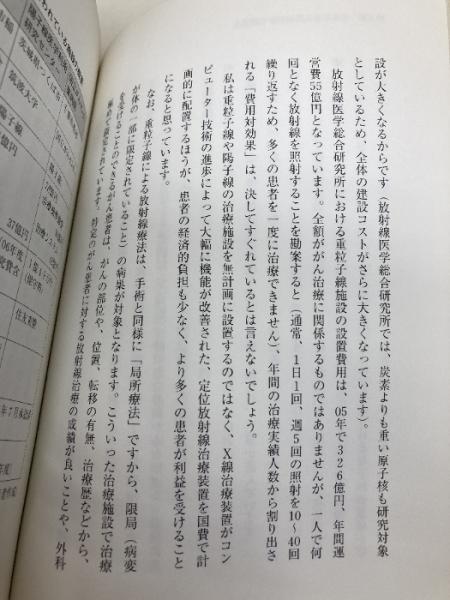 設が大きくなるからです（放射線医学総合研究所では、炭素よりも重い原子核も研究対象
としているため、全体の建設コストがさらに大きくなっています）。
放射線医学総合研究所における重粒子線施設の設置費用は、05年で326億円、年間運
営費55億円となっています。全額ががん治療に関係するものではありませんが、一人で何
回となく放射線を照射することを勘案すると（通常、1日1回、週5回の照射を10〜40回
繰り返すため、多くの患者を一度に治療できません）、年間の治療実績人数から割り出さ
れる「費用対効果」は、決してすぐれているとは言えないでしょう。
私は重粒子線や陽子線の治療施設を無計画に設置するのではなく、X線治療装置がコン
ピューター技術の進歩によって大幅に機能が改善された、定位放射線治療装置を国費で計
画的に配置するほうが、患者の経済的負担も少なく、より多くの患者が利益を受けること
になると思っています。
なお、重粒子線による放射線療法は、手術と同様に「局所療法」ですから、限局（病変
が体の一部に限定されていること）の病巣が対象となります。こういった治療施設で治療
を受けることのできるがん患者は、がんの部位や、位置、転移の有無、治療歴などから、
極めて限定されています。特定のがん患者に対する放射線治療の成績が良いことや、外科
筑波大学
37億円